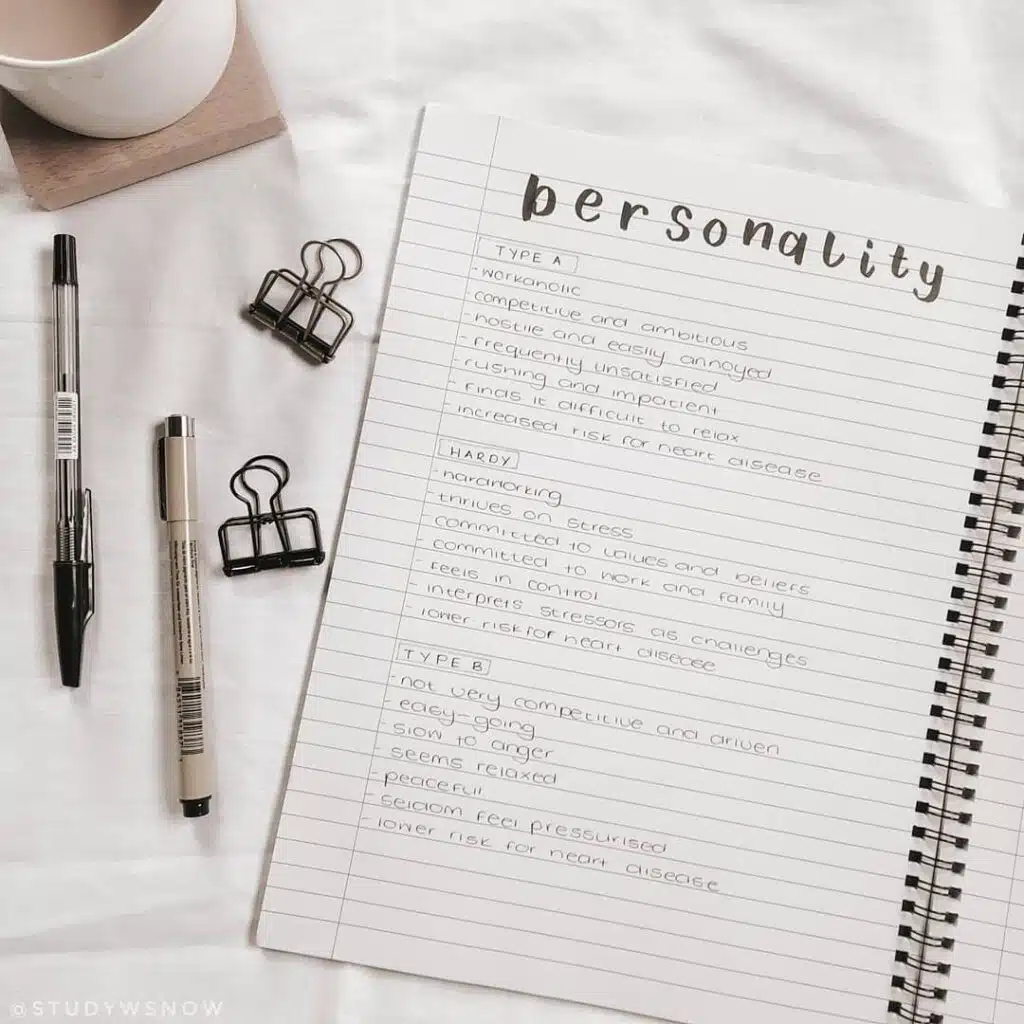 personality
TYPE A
- workaholic
- competitive and ambitious
- hostile and easily annoyed
- frequently unsatisfied
- rushing and impatient
- finds it difficult to relax
- increased risk for heart disease
HARDY
- hardworking
- thrives on stress
- committed to values and beliefs
- committed to work and family
- feels in control
- interprets stressors as challenges
- lower risk for heart disease
TYPE B
- not very competitive and driven
- easy-going
- slow to anger
- seems relaxed
- peaceful
- seldom feel pressurised
- lower risk for heart disease
@STUDYWSNOW